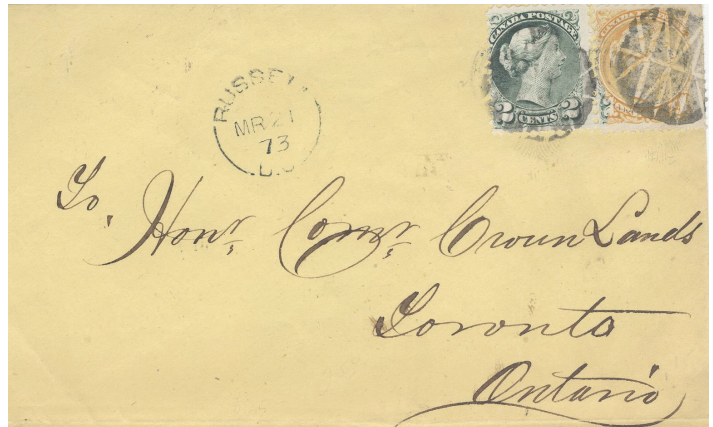 CANADA POSTAGE
2 CENTS 2
RUSSELL
MR 21
73
To, Honr. Comr. Crown Lands
Toronto
Ontario